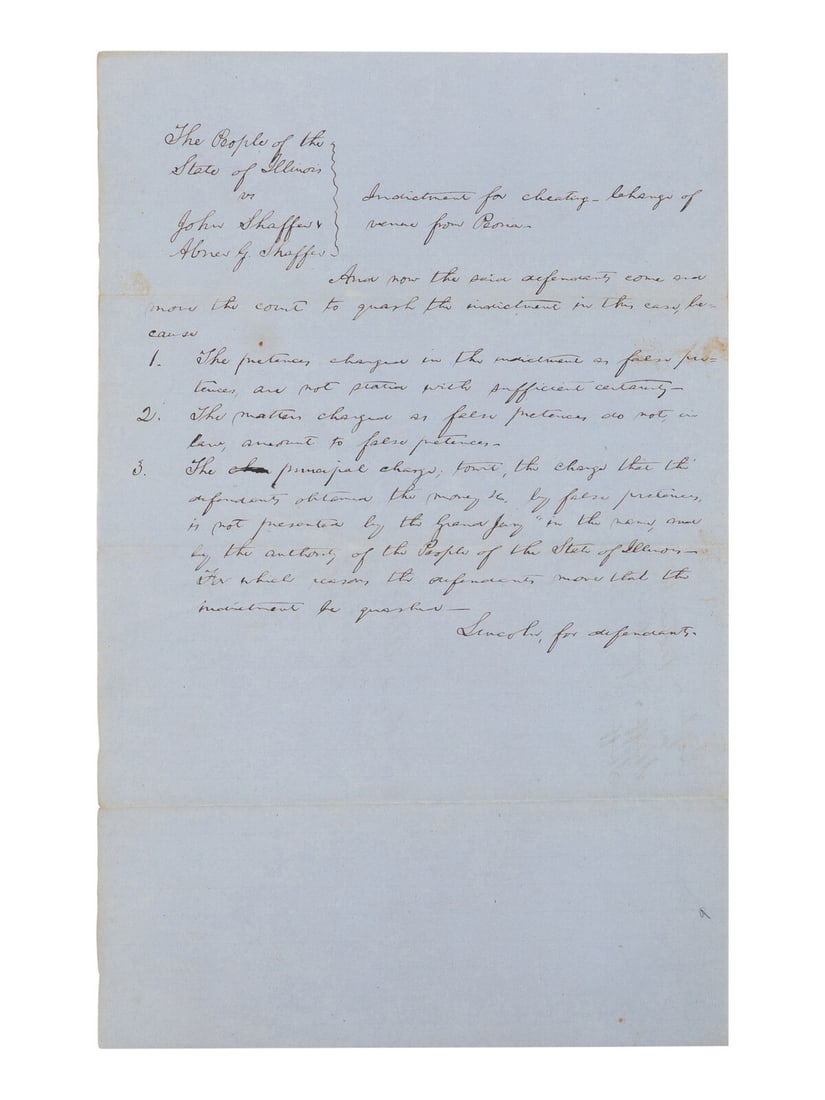 The People of the
State of Illinois
vs
John Shaffer &
Abner G. Shaffer
Indictment for cheating - Change of
venue from Peoria -
And now the said defendants come and
move the court to quash the indictment in this case, be-
cause
1. The pretences charged in the indictment as false pre-
tences, are not stated with sufficient certainty -
2. The matters charged as false pretences do not, in
law, amount to false pretences -
3. The principal charge, towit, the charge that the
defendants obtained the money &c. by false pretences,
is not presented by the Grand Jury "in the name, and
by the authority of the People of the State of Illinois -
For which reasons the defendants move that the
indictment be quashed -
Lincoln, for defendants -